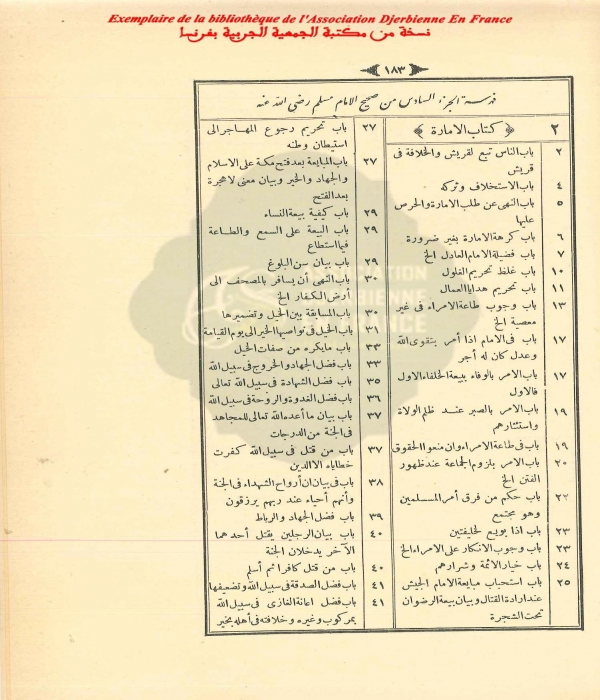 Exemplaire de la bibliothèque de l'Association Djerbienne En France
نسخة من مكتبة الجمعية الجربية بفرنسا
١٨٣
فهرسة الجزء السادس من صحيح الامام مسلم رضى الله عنه
٢ ﴿ كتاب الامارة ﴾
٢ باب الناس تبع لقريش والخلافة فى
قريش
٤ باب الاستخلاف وتركه
٥ باب النهى عن طلب الامارة والحرص
عليها
٦ باب كرهة الامارة بغير ضرورة
٧ باب فضيلة الامام العادل الخ
١٠ باب غلظ تحريم الغلول
١١ باب تحريم هدايا العمال
١٣ باب وجوب طاعة الامراء فى غير
معصية الخ
١٧ باب فى الامام اذا أمر بتقوى الله
وعدل كان له أجر
١٧ باب الامر بالوفاء ببيعة الخلفاء الاول
فالاول
١٩ باب الامر بالصبر عند ظلم الولاة
واستئثارهم
١٩ باب فى طاعة الامراء وان منعوا الحقوق
٢٠ باب الامر بلزوم الجماعة عند ظهور
الفتن الخ
٢٢ باب حكم من فرق أمر المسلمين
وهو مجتمع
٢٣ باب اذا بويع لخليفتين
٢٣ باب وجوب الانكار على الامراء الخ
٢٤ باب خيار الائمة وشرارهم
٢٥ باب استحباب مبايعة الامام الجيش
عند ارادة القتال وبيان بيعة الرضوان
تحت الشجرة
٢٧ باب تحريم رجوع المهاجر الى
استيطان وطنه
٢٧ باب المبايعة بعد فتح مكة على الاسلام
والجهاد والخير وبيان معنى لا هجرة
بعد الفتح
٢٩ باب كيفية بيعة النساء
٢٩ باب البيعة على السمع والطاعة
فيما استطاع
٢٩ باب بيان سن البلوغ
٣٠ باب النهى أن يسافر بالمصحف الى
أرض الكفار الخ
٣٠ باب المسابقة بين الخيل وتضميرها
٣١ باب الخيل فى نواصيها الخير الى يوم القيامة
٣٣ باب ما يكره من صفات الخيل
٣٣ باب فضل الجهاد والخروج فى سبيل الله
٣٥ باب فضل الشهادة فى سبيل الله تعالى
٣٦ باب فضل الغدوة والروحة فى سبيل الله
٣٧ باب بيان ما أعده الله تعالى للمجاهد
فى الجنة من الدرجات
٣٧ باب من قتل فى سبيل الله كفرت
خطاياه الا الدين
٣٨ باب فى بيان ان أرواح الشهداء فى الجنة
وأنهم أحياء عند ربهم يرزقون
٣٩ باب فضل الجهاد والرباط
٤٠ باب بيان الرجلين يقتل أحدهما
الآخر يدخلان الجنة
٤٠ باب من قتل كافرا ثم أسلم
٤١ باب فضل الصدقة فى سبيل الله وتضعيفها
٤١ باب فضل اعانة الغازى فى سبيل الله
بمركوب وغيره وخلافته فى أهله بخير
ASSOCIATION
DJERBIENNE
EN FRANCE